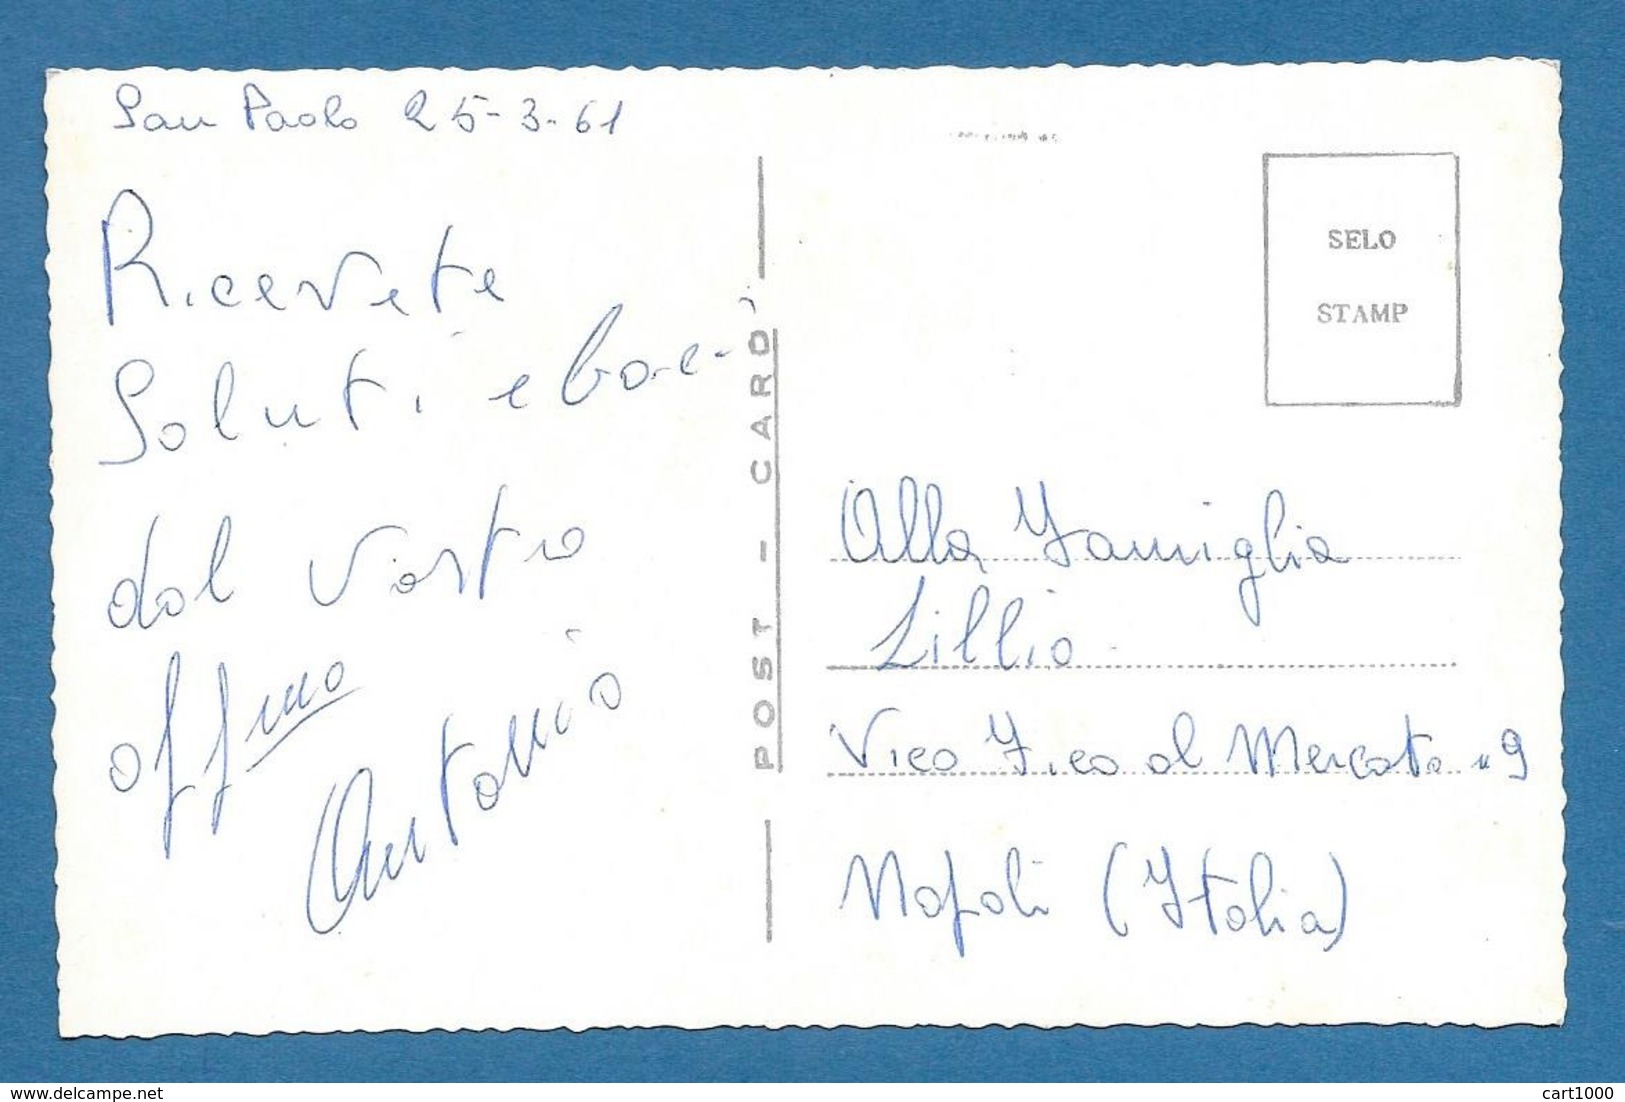 San Paolo 25-3-61
Ricevete
Saluti e baci
dal Vostro
affmo
Antonio
POST - CARD
SELO
STAMP
Alla Famiglia
Lillio
Vico Fico al Mercato n 9
Napoli (Italia)
delcampe.net
cart1000